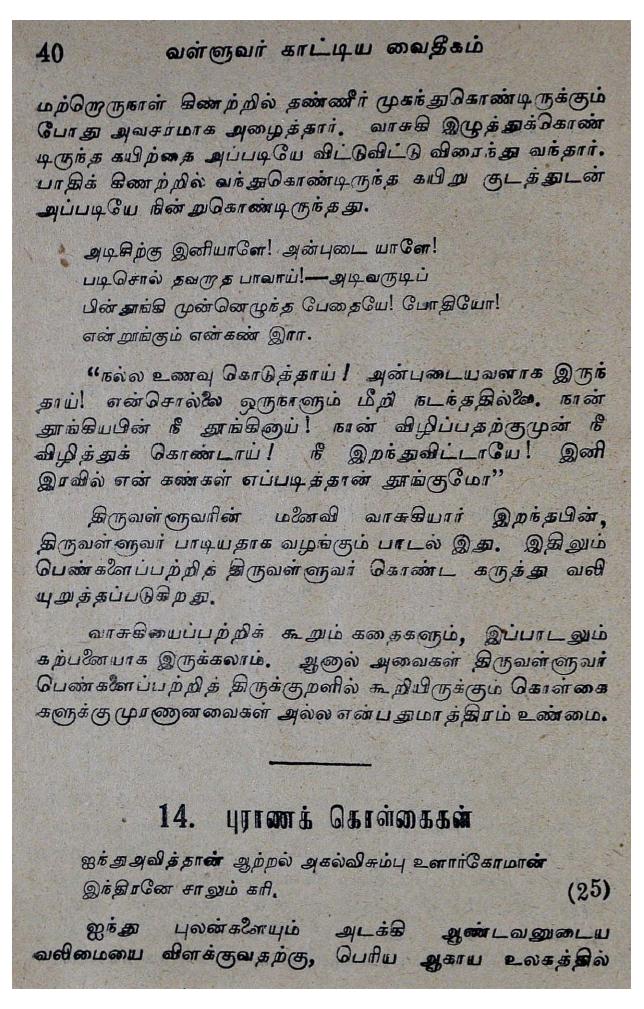 40 வள்ளுவர் காட்டிய வைதீகம்
மற்றொருநாள் கிணற்றில் தண்ணீர் முகந்துகொண்டிருக்கும்
போது அவசரமாக அழைத்தார். வாசுகி இழுத்துக்கொண்
டிருந்த கயிற்தை அப்படியே விட்டுவிட்டு விரைந்து வந்தார்.
பாதிக் கிணற்றில் வந்துகொண்டிருந்த கயிறு குடத்துடன்
அப்படியே நின்றுகொண்டிருந்தது.
அடிசிற்கு இனியாளே! அன்புடை யாளே!
படிசொல் தவறாத பாவாய்!—அடிவருடிப்
பின்தூங்கி முன்னெழுந்த பேதையே! போதியோ!
என்றூங்கும் என்கண் இரா.
“நல்ல உணவு கொடுத்தாய்! அன்புடையவளாக இருந்
தாய்! என்சொல்லை ஒருநாளும் மீறி நடந்ததில்லை. நான்
தூங்கியபின் நீ தூங்கினாய்! நான் விழிப்பதற்குமுன் நீ
விழித்துக் கொண்டாய்! நீ இறந்துவிட்டாயே! இனி
இரவில் என் கண்கள் எப்படித்தான் தூங்குமோ”
திருவள்ளுவரின் மனைவி வாசுகியார் இறந்தபின்,
திருவள்ளுவர் பாடியதாக வழங்கும் பாடல் இது. இதிலும்
பெண்களைப்பற்றித் திருவள்ளுவர் கொண்ட கருத்து வலி
யுறுத்தப்படுகிறது.
வாசுகியைப்பற்றிக் கூறும் கதைகளும், இப்பாடலும்
கற்பனையாக இருக்கலாம். ஆனால் அவைகள் திருவள்ளுவர்
பெண்களைப்பற்றித் திருக்குறளில் கூறியிருக்கும் கொள்கை
களுக்கு முரணானவைகள் அல்ல என்பதுமாத்திரம் உண்மை.
14. புராணக் கொள்கைகள்
ஐந்துஅவித்தான் ஆற்றல் அகல்விசும்பு உளார்கோமான்
இந்திரனே சாலும் கரி. (25)
ஐந்து புலன்களையும் அடக்கி ஆண்டவனுடைய
வலிமையை விளக்குவதற்கு, பெரிய ஆகாய உலகத்தில்